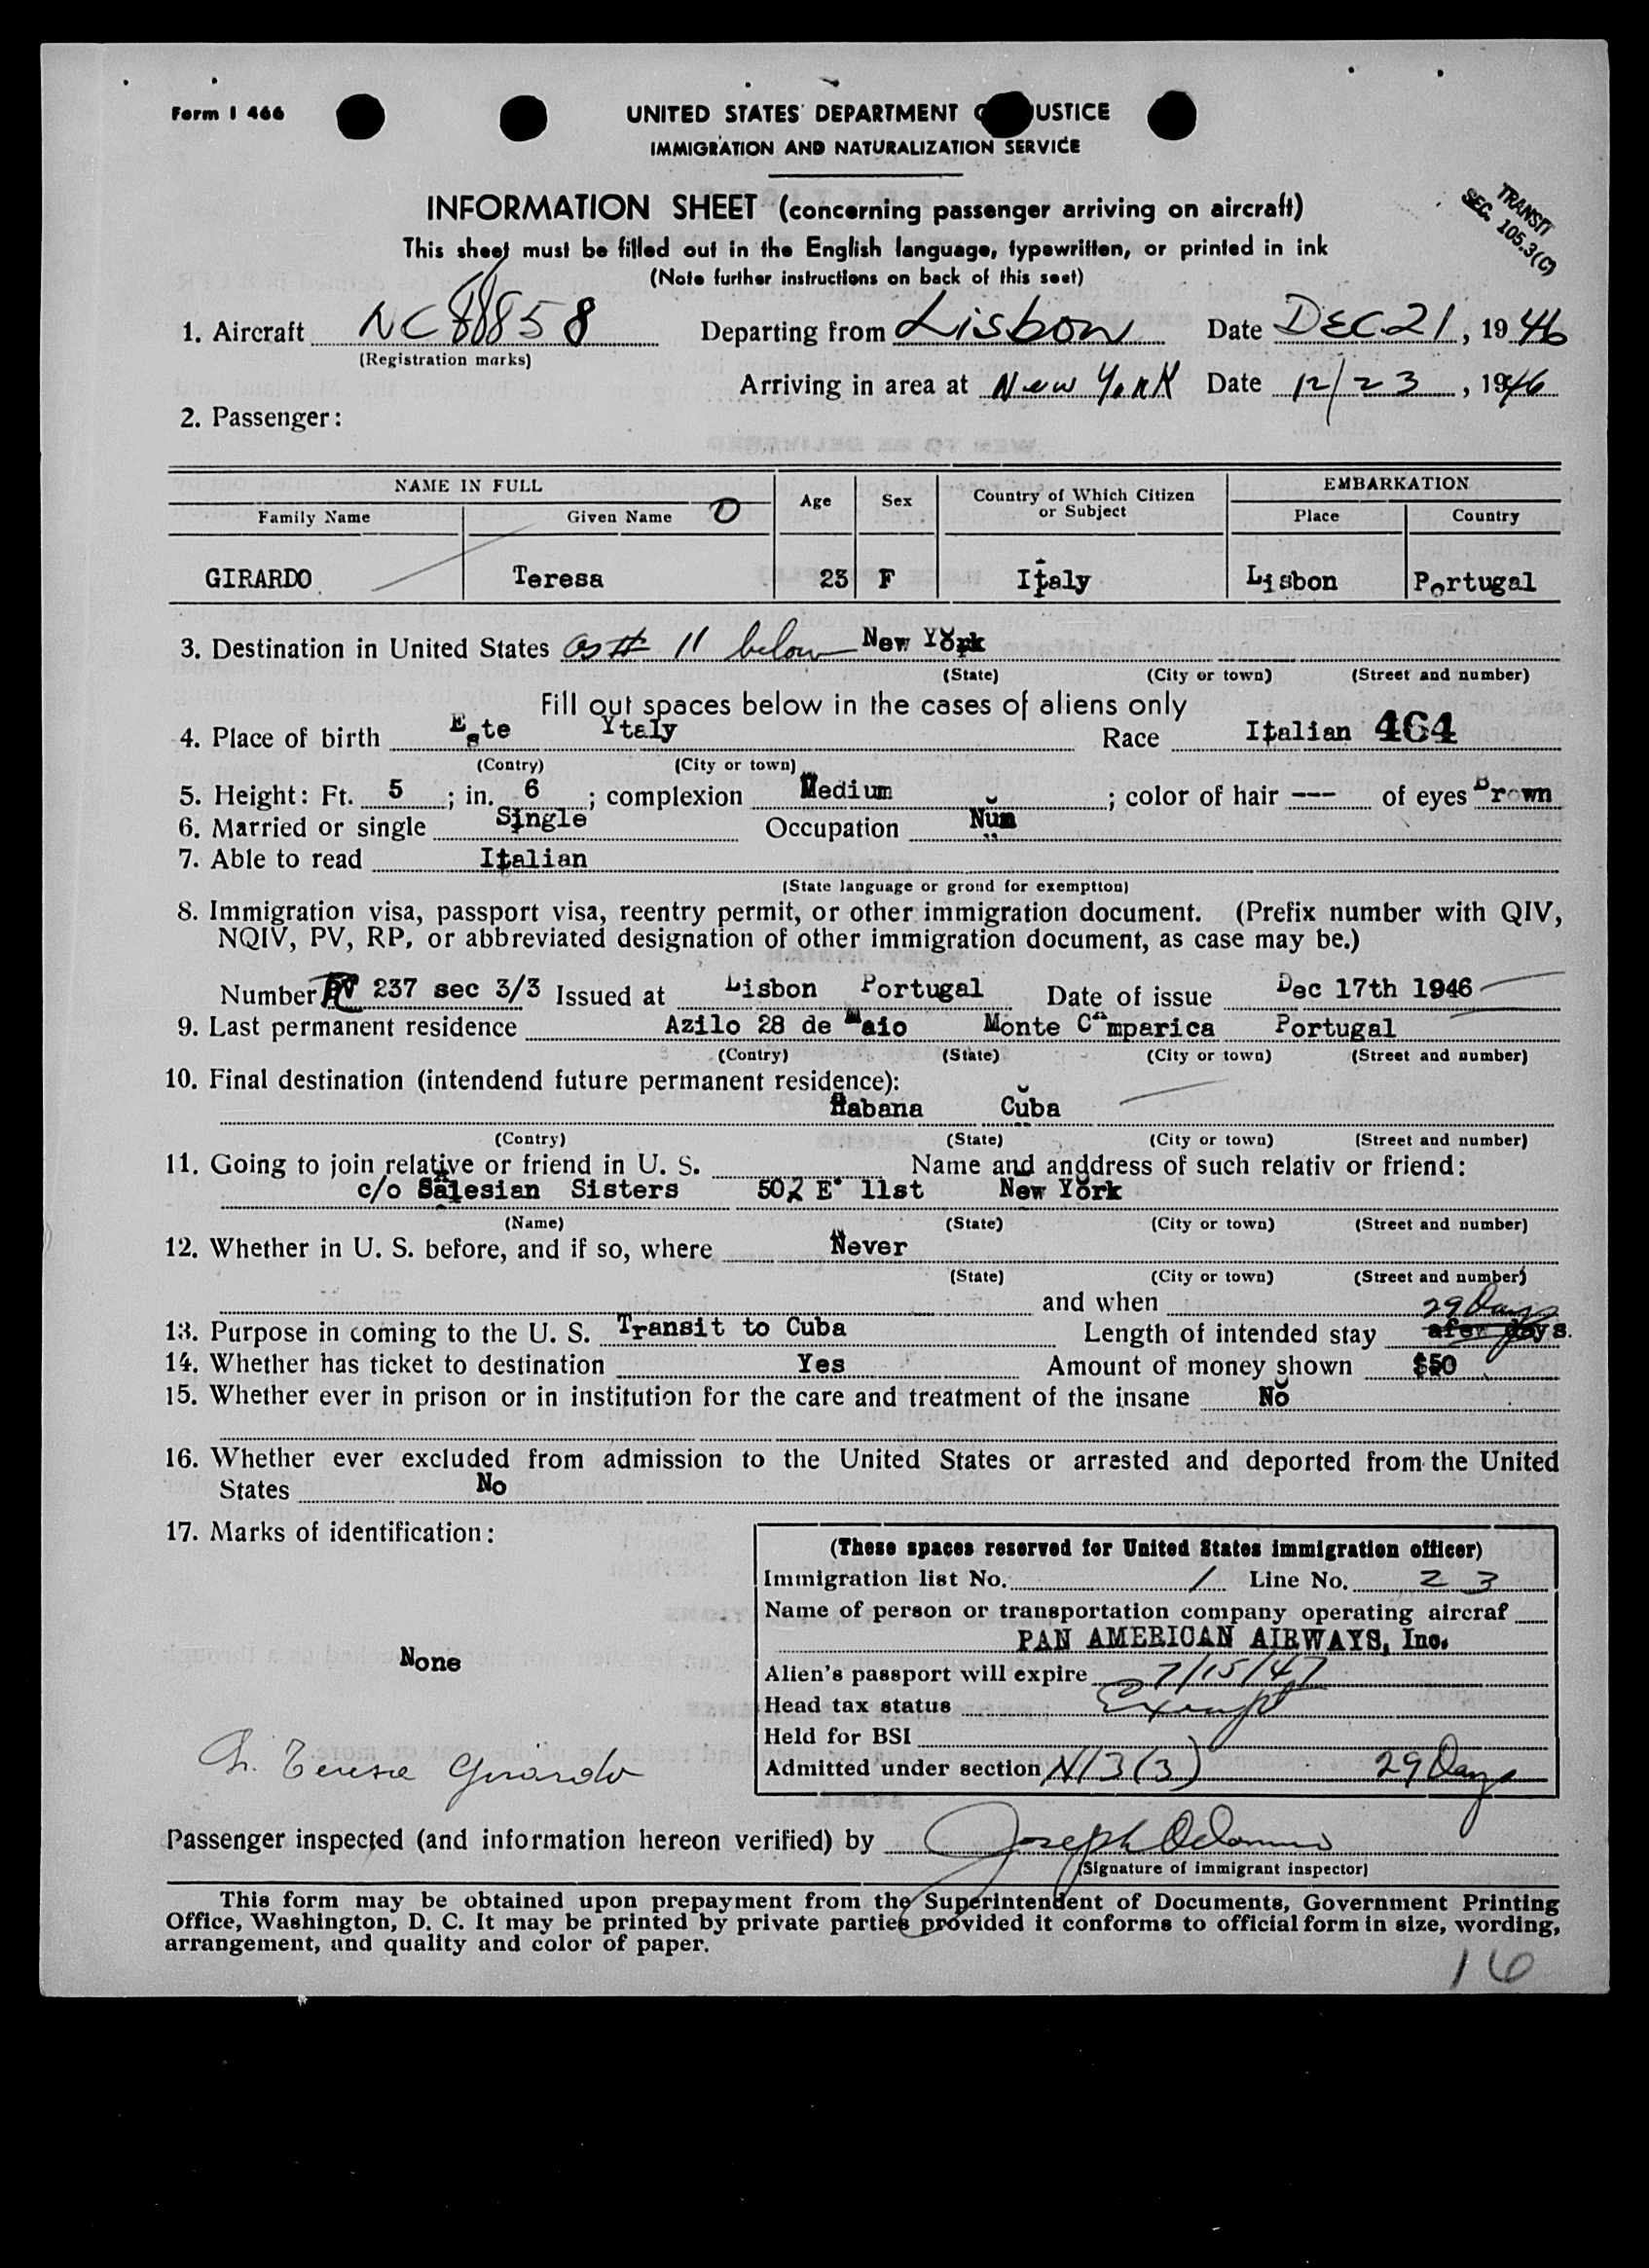 Form I 466
UNITED STATES DEPARTMENT O USTICE
IMMIGRATION AND NATURALIZATION SERVICE
TRANSIT
SEC. 105.3(C)
INFORMATION SHEET (concerning passenger arriving on aircraft)
This sheet must be filled out in the English language, typewritten, or printed in ink
(Note further instructions on back of this seet)
1. Aircraft NC 88858 Departing from Lisbon Date DEC. 21, 1946
(Registration marks)
Arriving in area at New York Date 12/23, 1946
2. Passenger:
NAME IN FULL Age Sex Country of Which Citizen or Subject EMBARKATION
Family Name Given Name O Place Country
GIRARDO Teresa 23 F Italy Lisbon Portugal
3. Destination in United States as # 11 below New York
(State) (City or town) (Street and number)
Fill out spaces below in the cases of aliens only
4. Place of birth Este Ytaly Race Italian 464
(Contry) (City or town)
5. Height: Ft. 5 ; in. 6 ; complexion Medium ; color of hair --- of eyes Brown
6. Married or single Single Occupation Nun
7. Able to read Italian
(State language or grond for exemptton)
8. Immigration visa, passport visa, reentry permit, or other immigration document. (Prefix number with QIV,
NQIV, PV, RP, or abbreviated designation of other immigration document, as case may be.)
Number PV 237 sec 3/3 Issued at Lisbon Portugal Date of issue Dec 17th 1946
9. Last permanent residence Azilo 28 de Maio Monte Camparica Portugal
(Contry) (State) (City or town) (Street and number)
10. Final destination (intendend future permanent residence):
Habana Cuba
(Contry) (State) (City or town) (Street and number)
11. Going to join relative or friend in U. S. Name and anddress of such relativ or friend:
c/o Salesian Sisters 502 E 11st New York
(Name) (State) (City or town) (Street and number)
12. Whether in U. S. before, and if so, where Never
(State) (City or town) (Street and number)
and when
29 Days
13. Purpose in coming to the U. S. Transit to Cuba Length of intended stay afew days.
14. Whether has ticket to destination Yes Amount of money shown $50
15. Whether ever in prison or in institution for the care and treatment of the insane No
16. Whether ever excluded from admission to the United States or arrested and deported from the United
States No
17. Marks of identification:
None
(These spaces reserved for United States immigration officer)
Immigration list No. 1 Line No. 23
Name of person or transportation company operating aircraf
PAN AMERICAN AIRWAYS, Inc.
Alien's passport will expire 7/15/47
Head tax status Exempt
Held for BSI
Admitted under section N/3(3) 29 Days
Teresa Girardo
Passenger inspected (and information hereon verified) by Joseph
(Signature of immigrant inspector)
This form may be obtained upon prepayment from the Superintendent of Documents, Government Printing
Office, Washington, D. C. It may be printed by private parties provided it conforms to official form in size, wording,
arrangement, and quality and color of paper.
16